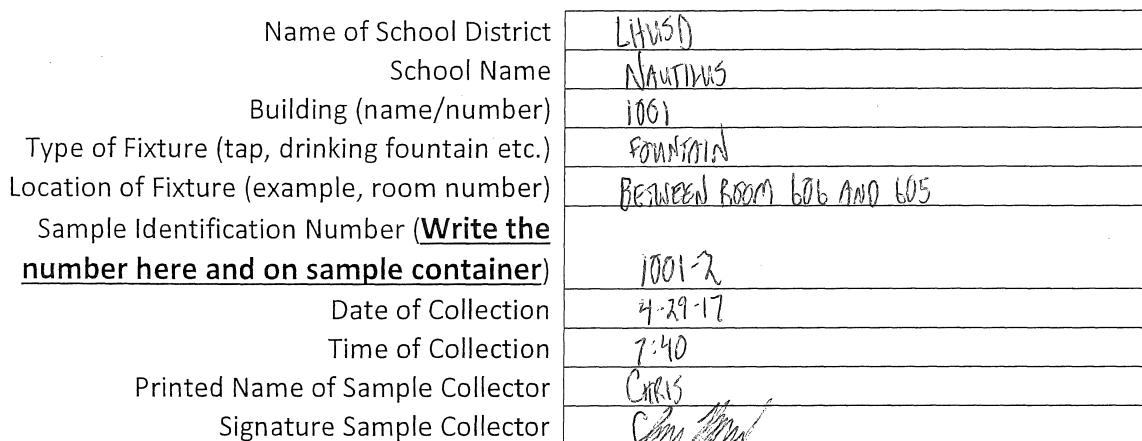 Name of School District LHUSD
School Name NAUTILUS
Building (name/number) 1001
Type of Fixture (tap, drinking fountain etc.) FOUNTAIN
Location of Fixture (example, room number) BETWEEN ROOM 606 AND 605
Sample Identification Number (Write the
number here and on sample container) 1001-2
Date of Collection 4-29-17
Time of Collection 7:40
Printed Name of Sample Collector CHRIS
Signature Sample Collector